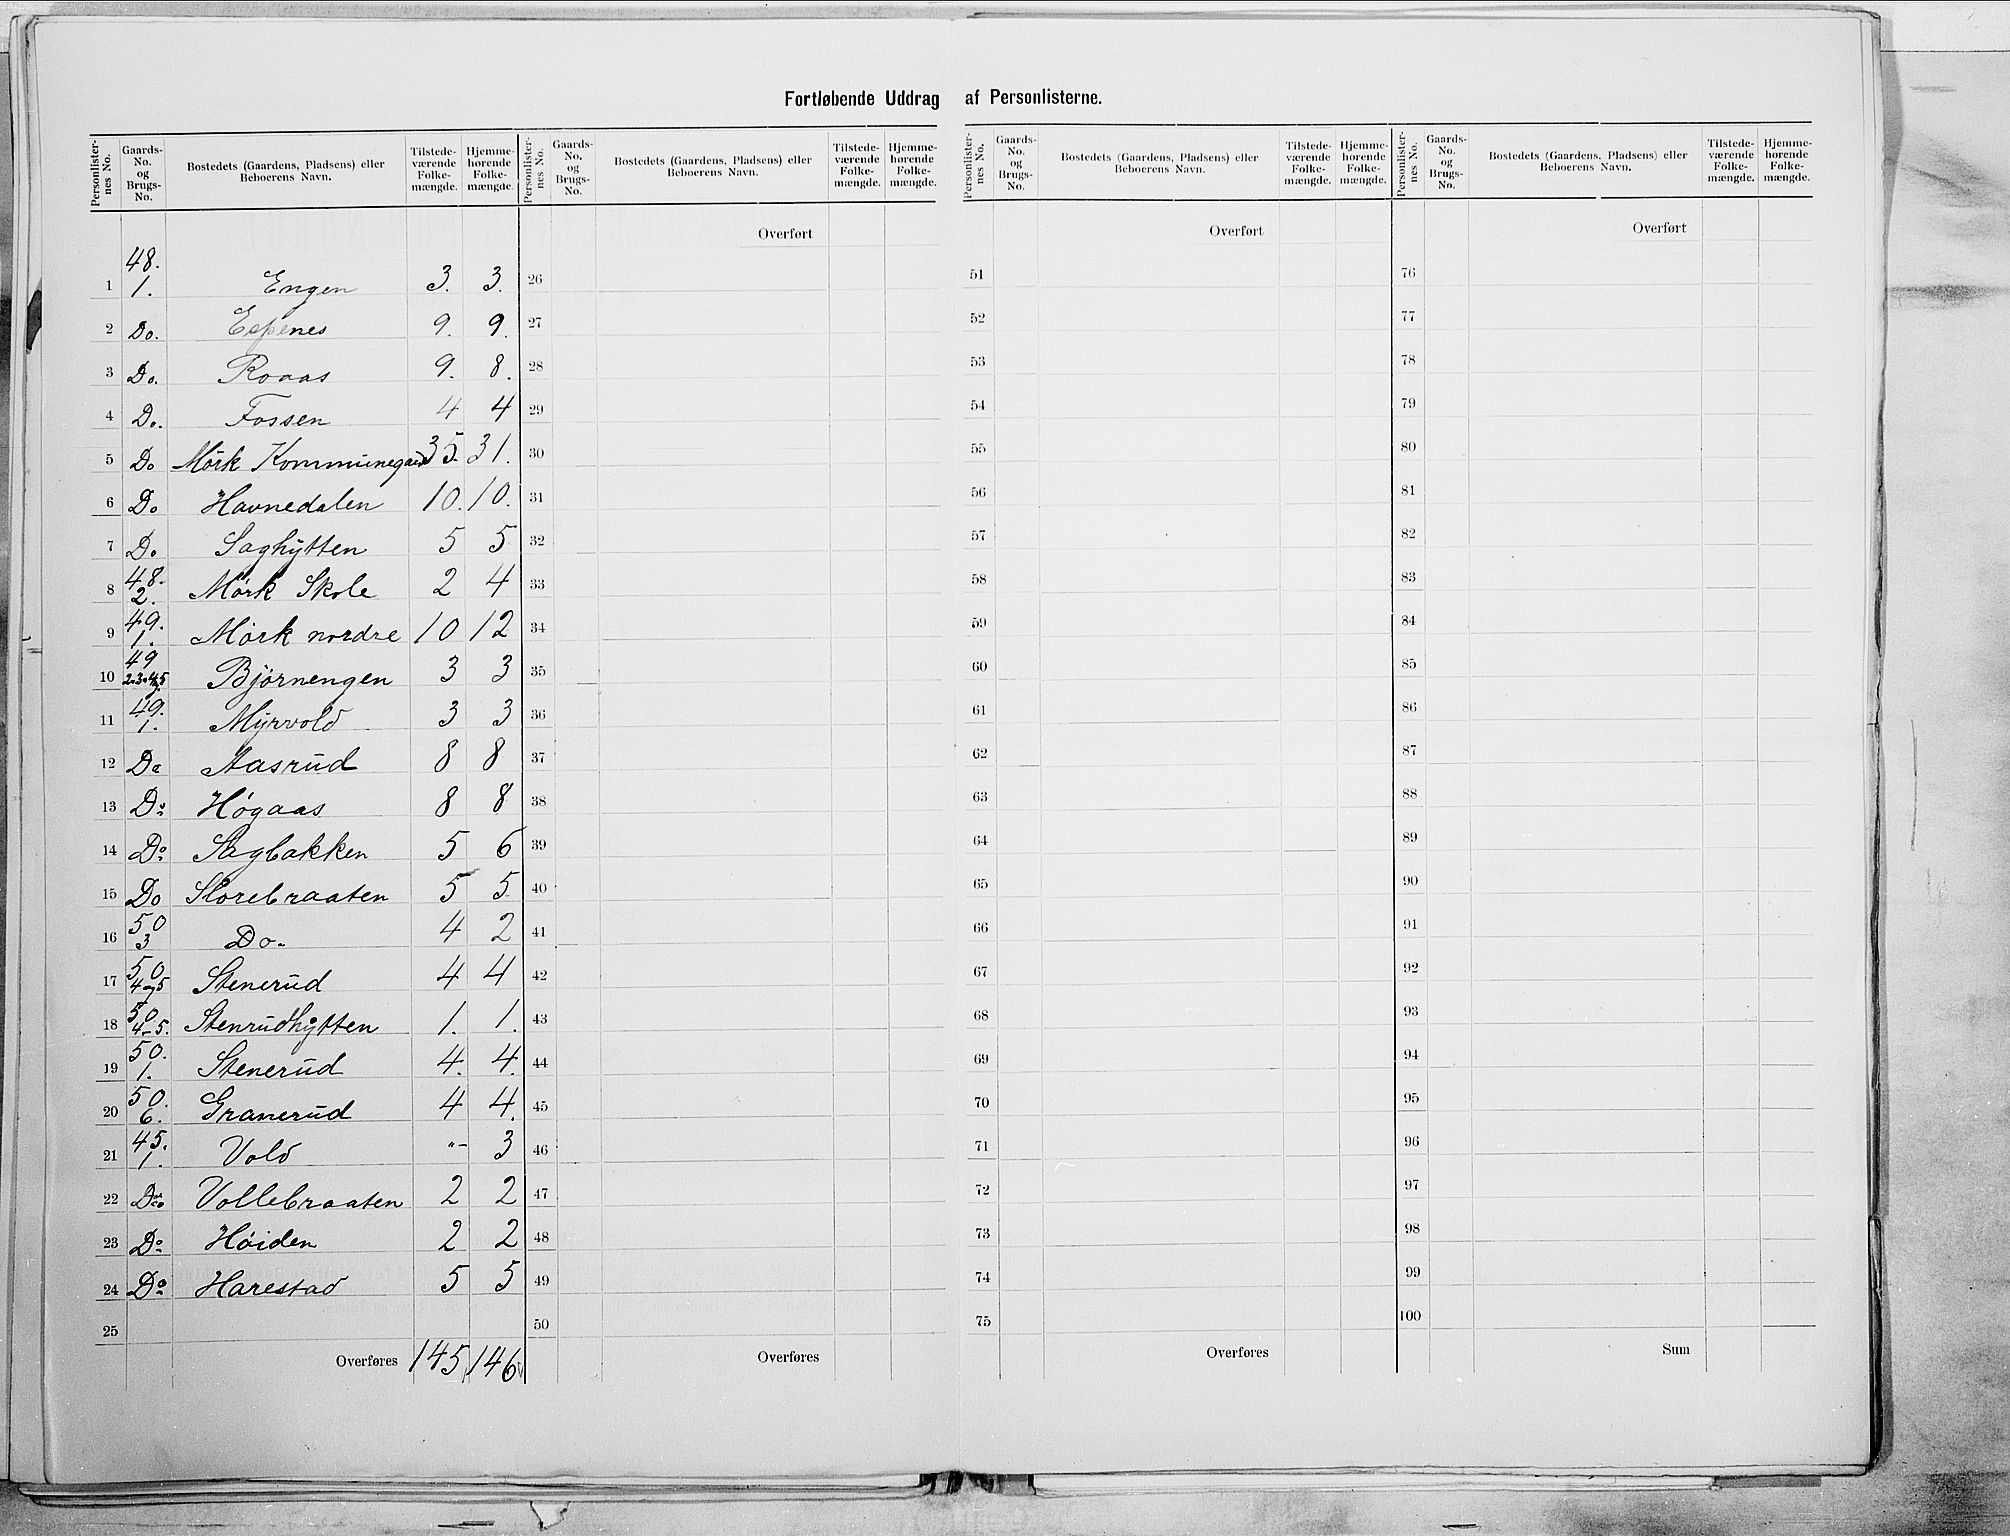 Fortløbende Uddrag af Personlisterne.
Personlister-nes No. Gaards-No. og Brugs-No. Bostedets (Gaardens, Pladsens) eller Beboerens Navn. Tilstede-værende Folke-mængde. Hjemme-hørende Folke-mængde.
Personlister-nes No. Gaards-No. og Brugs-No. Bostedets (Gaardens, Pladsens) eller Beboerens Navn. Tilstede-værende Folke-mængde. Hjemme-hørende Folke-mængde.
Personlister-nes No. Gaards-No. og Brugs-No. Bostedets (Gaardens, Pladsens) eller Beboerens Navn. Tilstede-værende Folke-mængde. Hjemme-hørende Folke-mængde.
Personlister-nes No. Gaards-No. og Brugs-No. Bostedets (Gaardens, Pladsens) eller Beboerens Navn. Tilstede-værende Folke-mængde. Hjemme-hørende Folke-mængde.
Overført Overført Overført
1 48. 1. Engen 3. 3. 26 51 76
2 Do. Espenes 9. 9. 27 52 77
3 Do. Roaas 9. 8. 28 53 78
4 Do. Fossen 4 4 29 54 79
5 Do Mørk Kommunegaard 35. 31. 30 55 80
6 Do Havnedalen 10. 10. 31 56 81
7 Do Saghytten 5 5 32 57 82
8 48. 2. Mørk Skole 2 4 33 58 83
9 49. 1. Mørk nordre 10 12 34 59 84
10 49 2.3.4.5 Bjørnengen 3 3 35 60 85
11 49. 1. Myrvold 3 3 36 61 86
12 Do Aasrud 8 8 37 62 87
13 Do Høgaas 8 8 38 63 88
14 Do Sagbakken 5 6 39 64 89
15 Do Storebraaten 5 5. 40 65 90
16 50 3 Do- 4 2 41 66 91
17 50 4-5 Stenerud 4 4 42 67 92
18 50. 4-5. Stenrudhytten 1. 1. 43 68 93
19 50. 1. Stenerud 4. 4. 44 69 94
20 50. 6. Granerud 4 4. 45 70 95
21 45. 1. Vold "- 3 46 71 96
22 Do Vollebraaten 2 2 47 72 97
23 Do Høiden 2 2 48 73 98
24 Do Harestad 5 5 49 74 99
25 50 75 100
Overføres 145 146 Overføres Overføres Sum